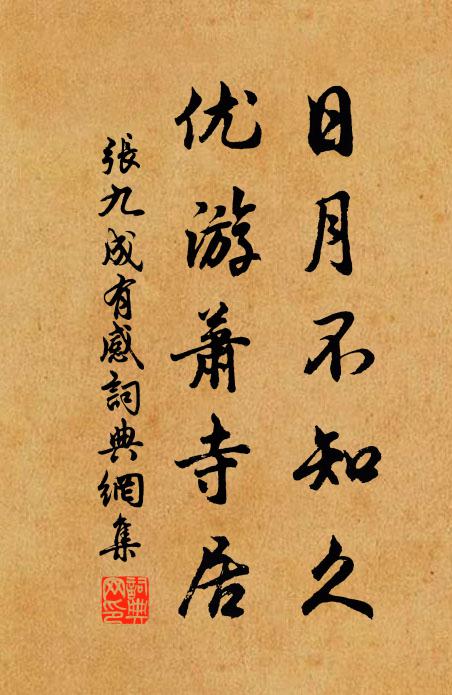 日月不知久
优游萧寺居
張九成有感詞典網集
詞典
网印